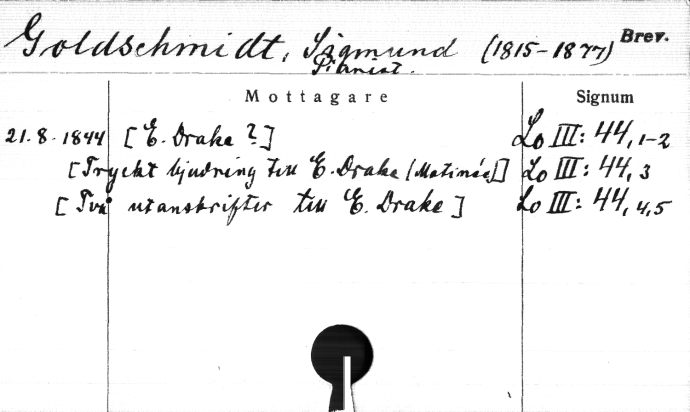 Goldschmidt, Sigmund (1815-1877) Brev.
Pianist.
Mottagare Signum
21.8.1844 [E. Drake?] Lo III: 44, 1-2
[Tryckt bjudning till E. Drake (Matinée)] Lo III: 44, 3
[Två utanskrifter till E. Drake] Lo III: 44, 4,5